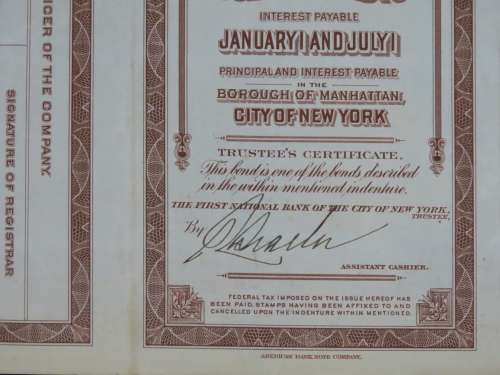 OFFICER OF THE COMPANY.
SIGNATURE OF REGISTRAR
INTEREST PAYABLE
JANUARY 1 AND JULY 1
PRINCIPAL AND INTEREST PAYABLE
IN THE
BOROUGH OF MANHATTAN,
CITY OF NEW YORK
TRUSTEE'S CERTIFICATE.
This bond is one of the bonds described
in the within mentioned indenture.
THE FIRST NATIONAL BANK OF THE CITY OF NEW YORK,
TRUSTEE,
By
ASSISTANT CASHIER.
FEDERAL TAX IMPOSED ON THE ISSUE HEREOF HAS
BEEN PAID, STAMPS HAVING BEEN AFFIXED TO AND
CANCELLED UPON THE INDENTURE WITHIN MENTIONED.
AMERICAN BANK NOTE COMPANY.